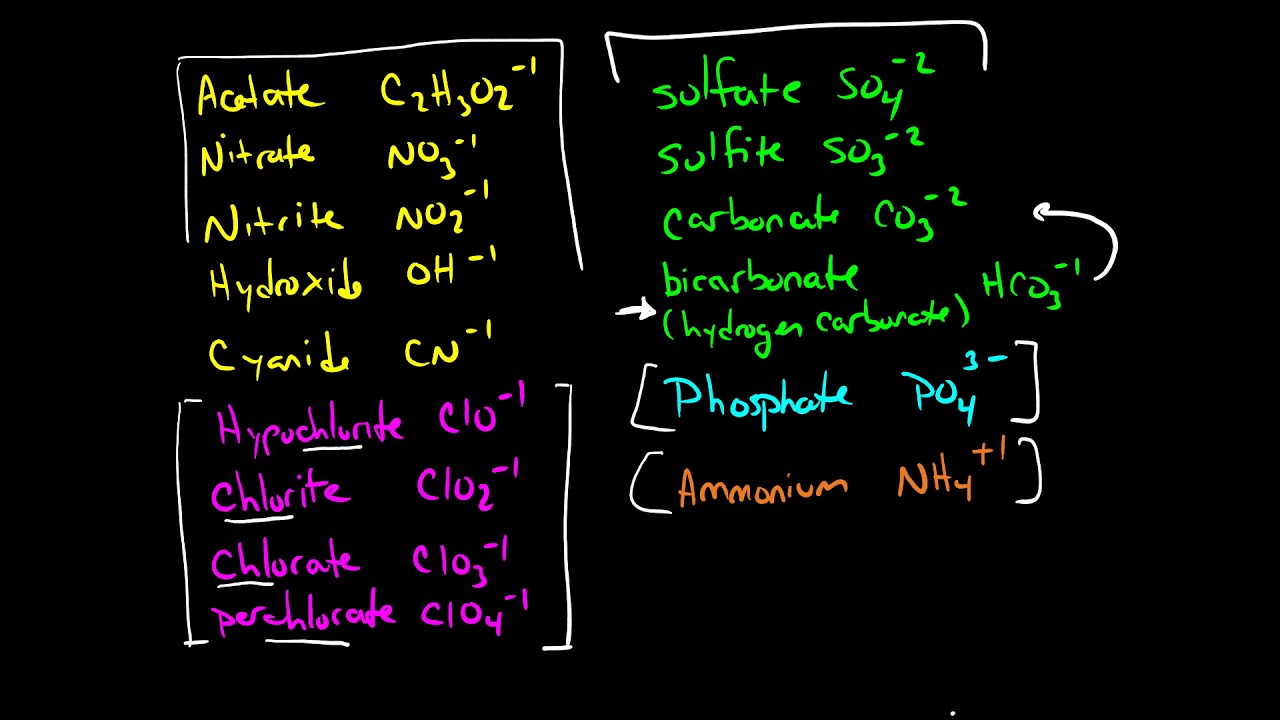 Acetate C₂H₃O₂⁻¹
Nitrate NO₃⁻¹
Nitrite NO₂⁻¹
Hydroxide OH⁻¹
Cyanide CN⁻¹
Hypochlorite ClO⁻¹
Chlorite ClO₂⁻¹
Chlorate ClO₃⁻¹
perchlorate ClO₄⁻¹
sulfate SO₄⁻²
sulfite SO₃⁻²
carbonate CO₃⁻²
bicarbonate HCO₃⁻¹
(hydrogen carbonate)
Phosphate PO₄³⁻
Ammonium NH₄⁺¹